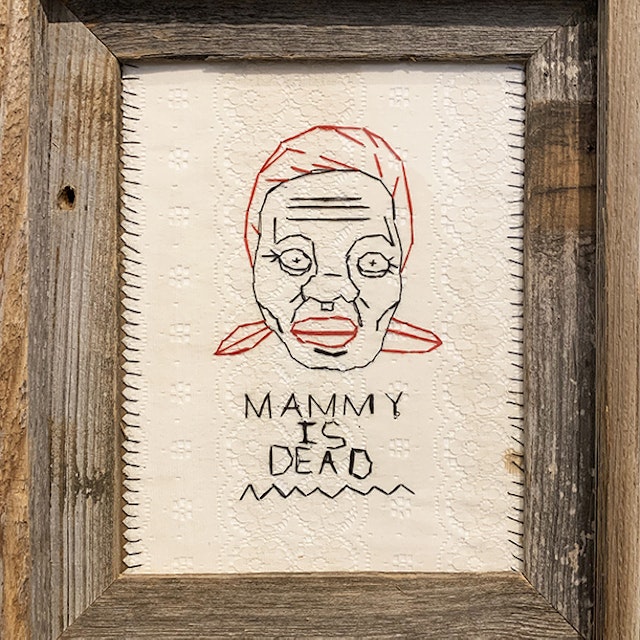 MAMMY
IS
DEAD